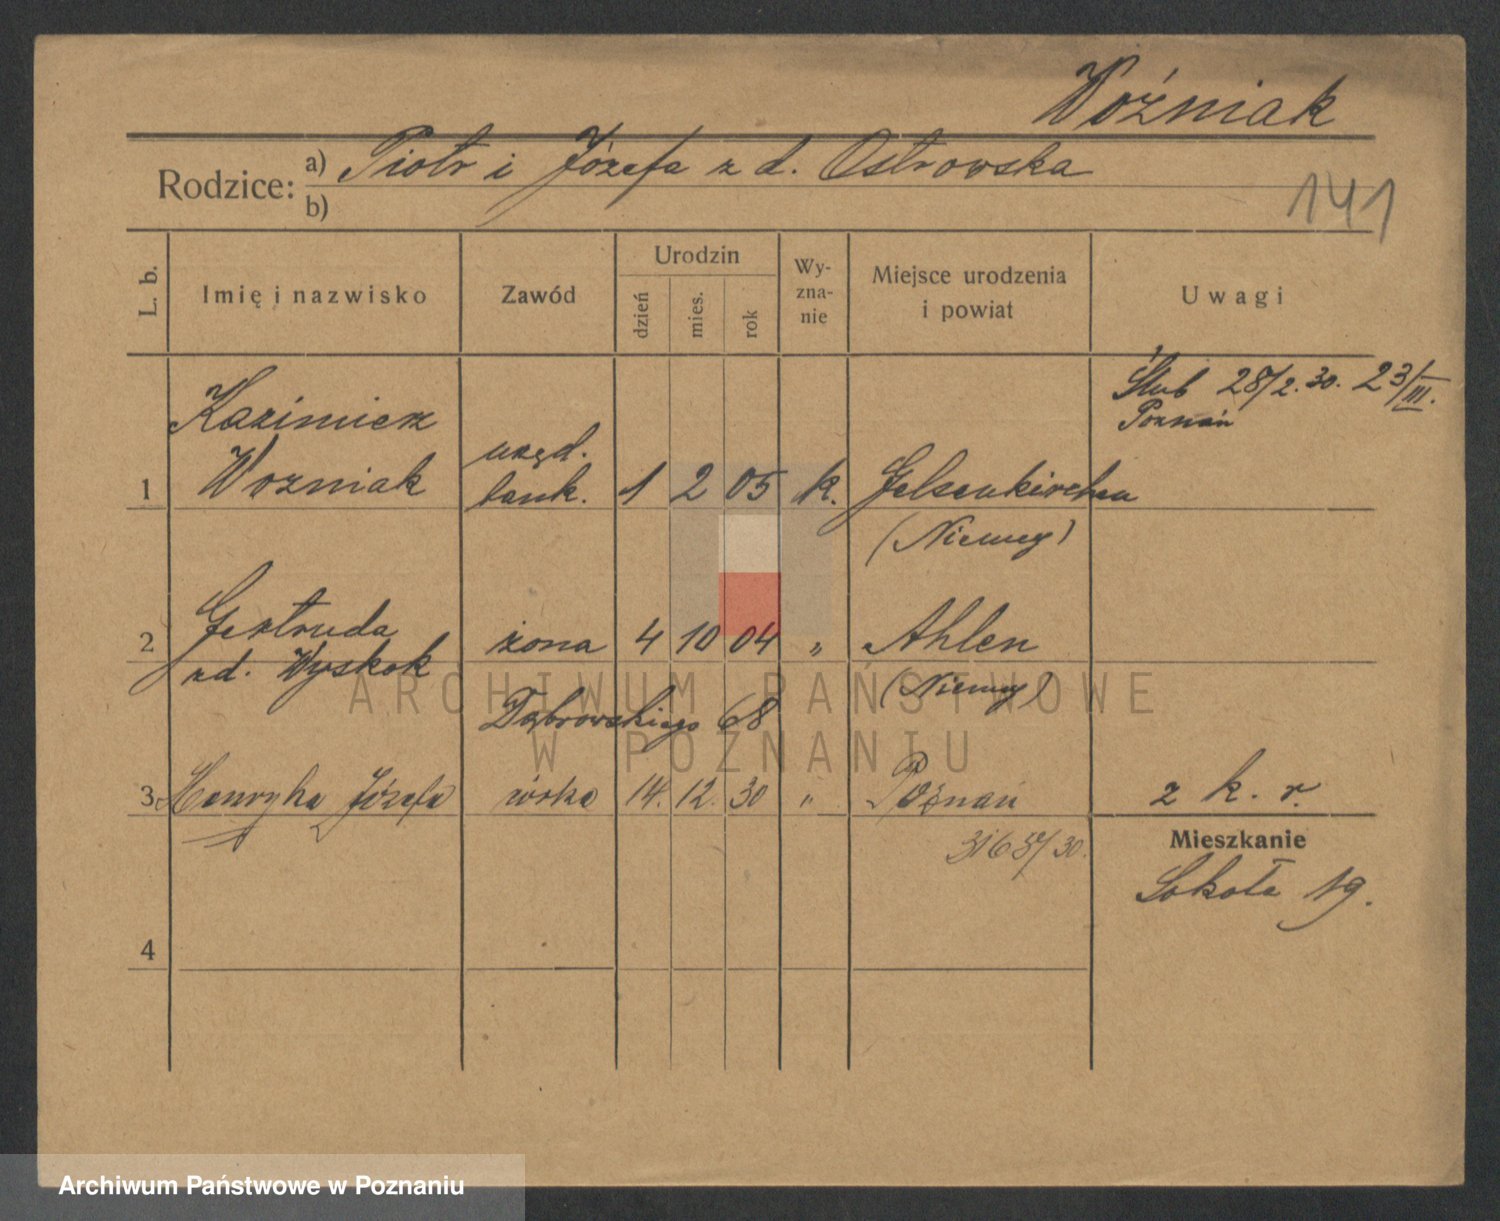 Woźniak
Rodzice: a) Piotr i Józefa z d. Ostrowska
b)
141
L. b.
Imię i nazwisko
Zawód
Urodzin
dzień
mies.
rok
Wy-
zna-
nie
Miejsce urodzenia
i powiat
Uwagi
Ślub 28/2.30. 23/III.
Poznań
Kazimierz
1 Wozniak urzęd. bank. 1 2 05 k. Gelsenkirchen
(Niemcy)
Gertruda
2 zd. Wyskok żona 4 10 04 " Ahlen
(Niemcy)
Dąbrowskiego 68
3 Henryka Józefa córka 14. 12. 30 " Poznań z k. r.
3165/30.
Mieszkanie
Sokoła 19.
4
ARCHIWUM PAŃSTWOWE
W POZNANIU
Archiwum Państwowe w Poznaniu